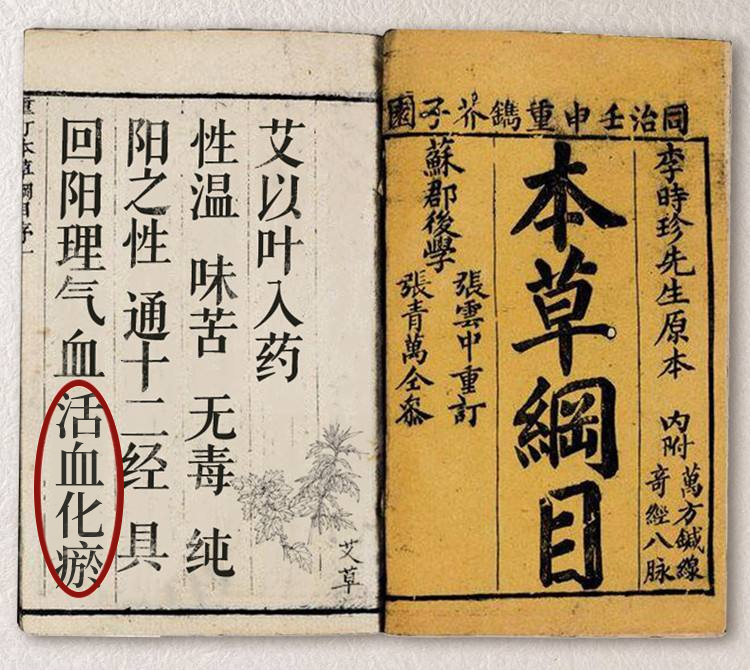 同治壬申重鐫芥子園
李時珍先生原本 內附
萬方鍼線
奇經八脉
本草綱目
蘇郡後學
張雲中重訂
張青萬仝叅
艾以叶入药
性温 味苦 无毒 纯
阳之性 通十二经 具
回阳理气血活血化瘀
艾草